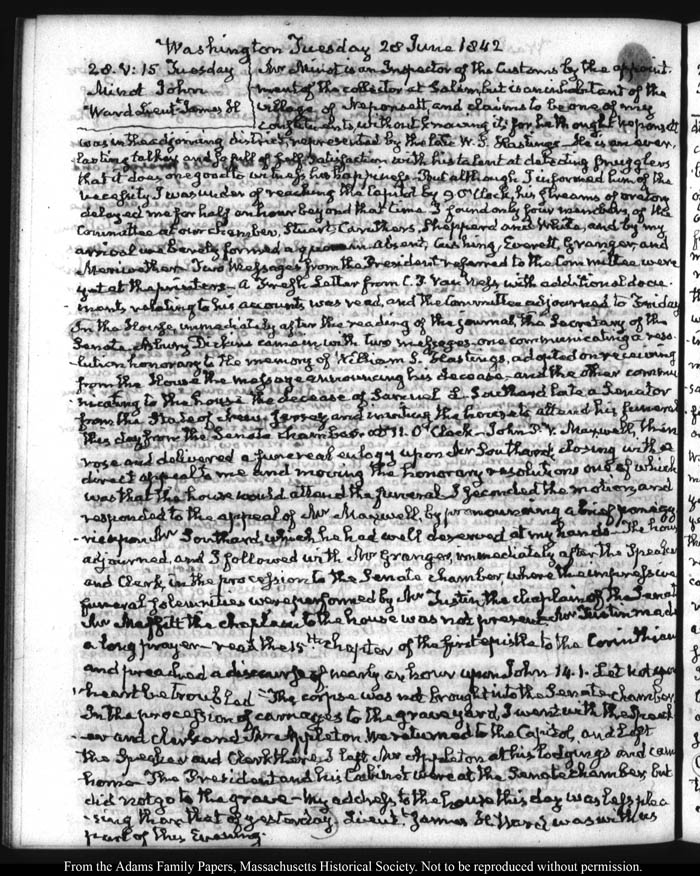 Washington Tuesday 28 June 1842
28. V: 15 Tuesday
Minot John
Ward Lieut. James H
Mr Minot is an Inspector of the Customs by the appoint-
ment of the collector at Salem, but is an inhabitant of the
village of Neponsett and claims to be one of my
constituents, without knowing it, for he thought Neponsett
was in the adjoining district, represented by the late W. S. Hastings. He is an ever-
lasting talker, and so full of self satisfaction with his talent at detecting smugglers
that it does one good to witness his happiness. But although I informed him of the
necessity I was under of reaching the Capitol by 9 O'Clock, his streams of oratory
delayed me for half an hour beyond that time. I found only four members of the
Committee at our chamber, Stuart, Caruthers, Shepperd and White, and by my
arrival we barely formed a quorum absent, Cushing, Everett, Granger, and
Meriwether. Two Messages from the President referred to the Committee were
yet at the printers— A Fresh Letter from C. P. Van Ness with additional docu-
ments relating to his accounts was read, and the Committee adjourned to Friday
In the House, immediately after the reading of the journal, the Secretary of the
Senate, Asbury Dickins came in with two messages—one communicating a reso-
lution honorary to the memory of William S. Hastings, adopted on receiving
from the House the message announcing his decease—and the other commu-
nicating to the house the decease of Samuel L. Southard late a Senator
from the State of New Jersey, and inviting the house to attend his funeral
this day from the Senate chamber at 11. O'Clock—John P. V. Maxwell, then
rose and delivered a funereal eulogy upon Mr Southard, closing with a
direct appeal to me and moving the honorary resolutions one of which
was that the house would attend the funeral. I seconded the motion, and
responded to the appeal of Mr Maxwell, by pronouncing a brief panegy-
ric upon Mr Southard, which he had well deserved at my hands—The house
adjourned, and I followed with Mr Granger, immediately after the Speaker
and Clerk, in the procession to the Senate chamber, where the impressive
funeral solemnities were performed by Mr Tustin, the chaplain of the Senate
Mr Maffitt the chaplain to the house was not present. Mr Tustin made
a long prayer—read the 15th chapter of the first epistle to the Corinthians
and preached a discourse of nearly an hour upon John 14.1. Let not your
heart be troubled—The corpse was not brought into the Senate-chamber.
In the procession of carriages to the graveyard, I went with the Speak-
er and Clerk and Mr Appleton. We returned to the Capitol, and left
the Speaker and Clerk there. I left Mr Appleton at his lodgings and came
home—The President and his Cabinet were at the Senate chamber, but
did not go to the grave—My address to the house this day was less plea-
sing than that of yesterday. Lieut. James H Ward was with us
part of this Evening.
From the Adams Family Papers, Massachusetts Historical Society. Not to be reproduced without permission.